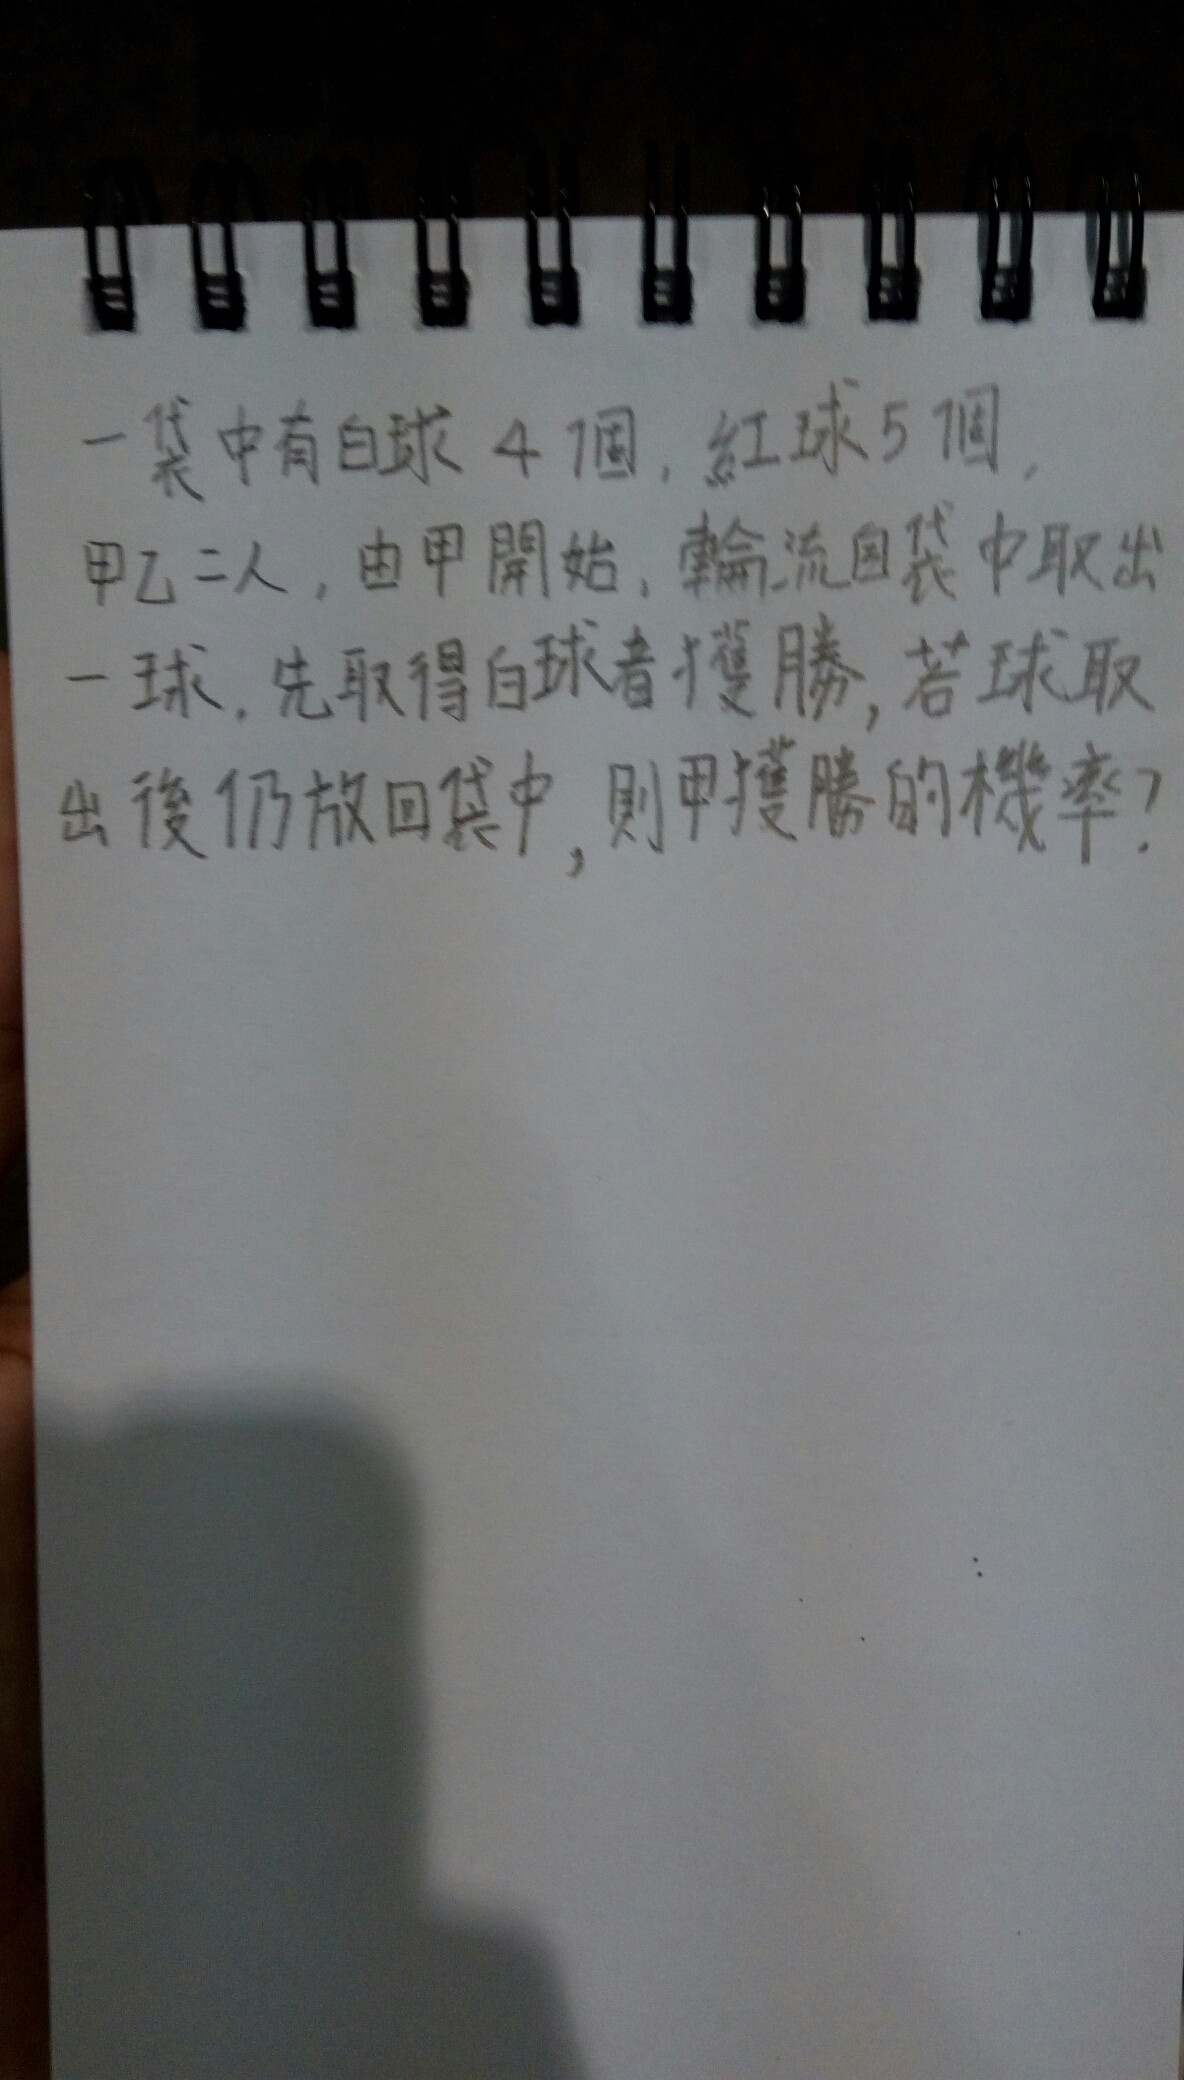 一袋中有白球 4 個, 紅球 5 個,
甲乙二人, 由甲開始, 輪流自袋中取出
一球, 先取得白球者獲勝, 若球取
出後仍放回袋中, 則甲獲勝的機率?